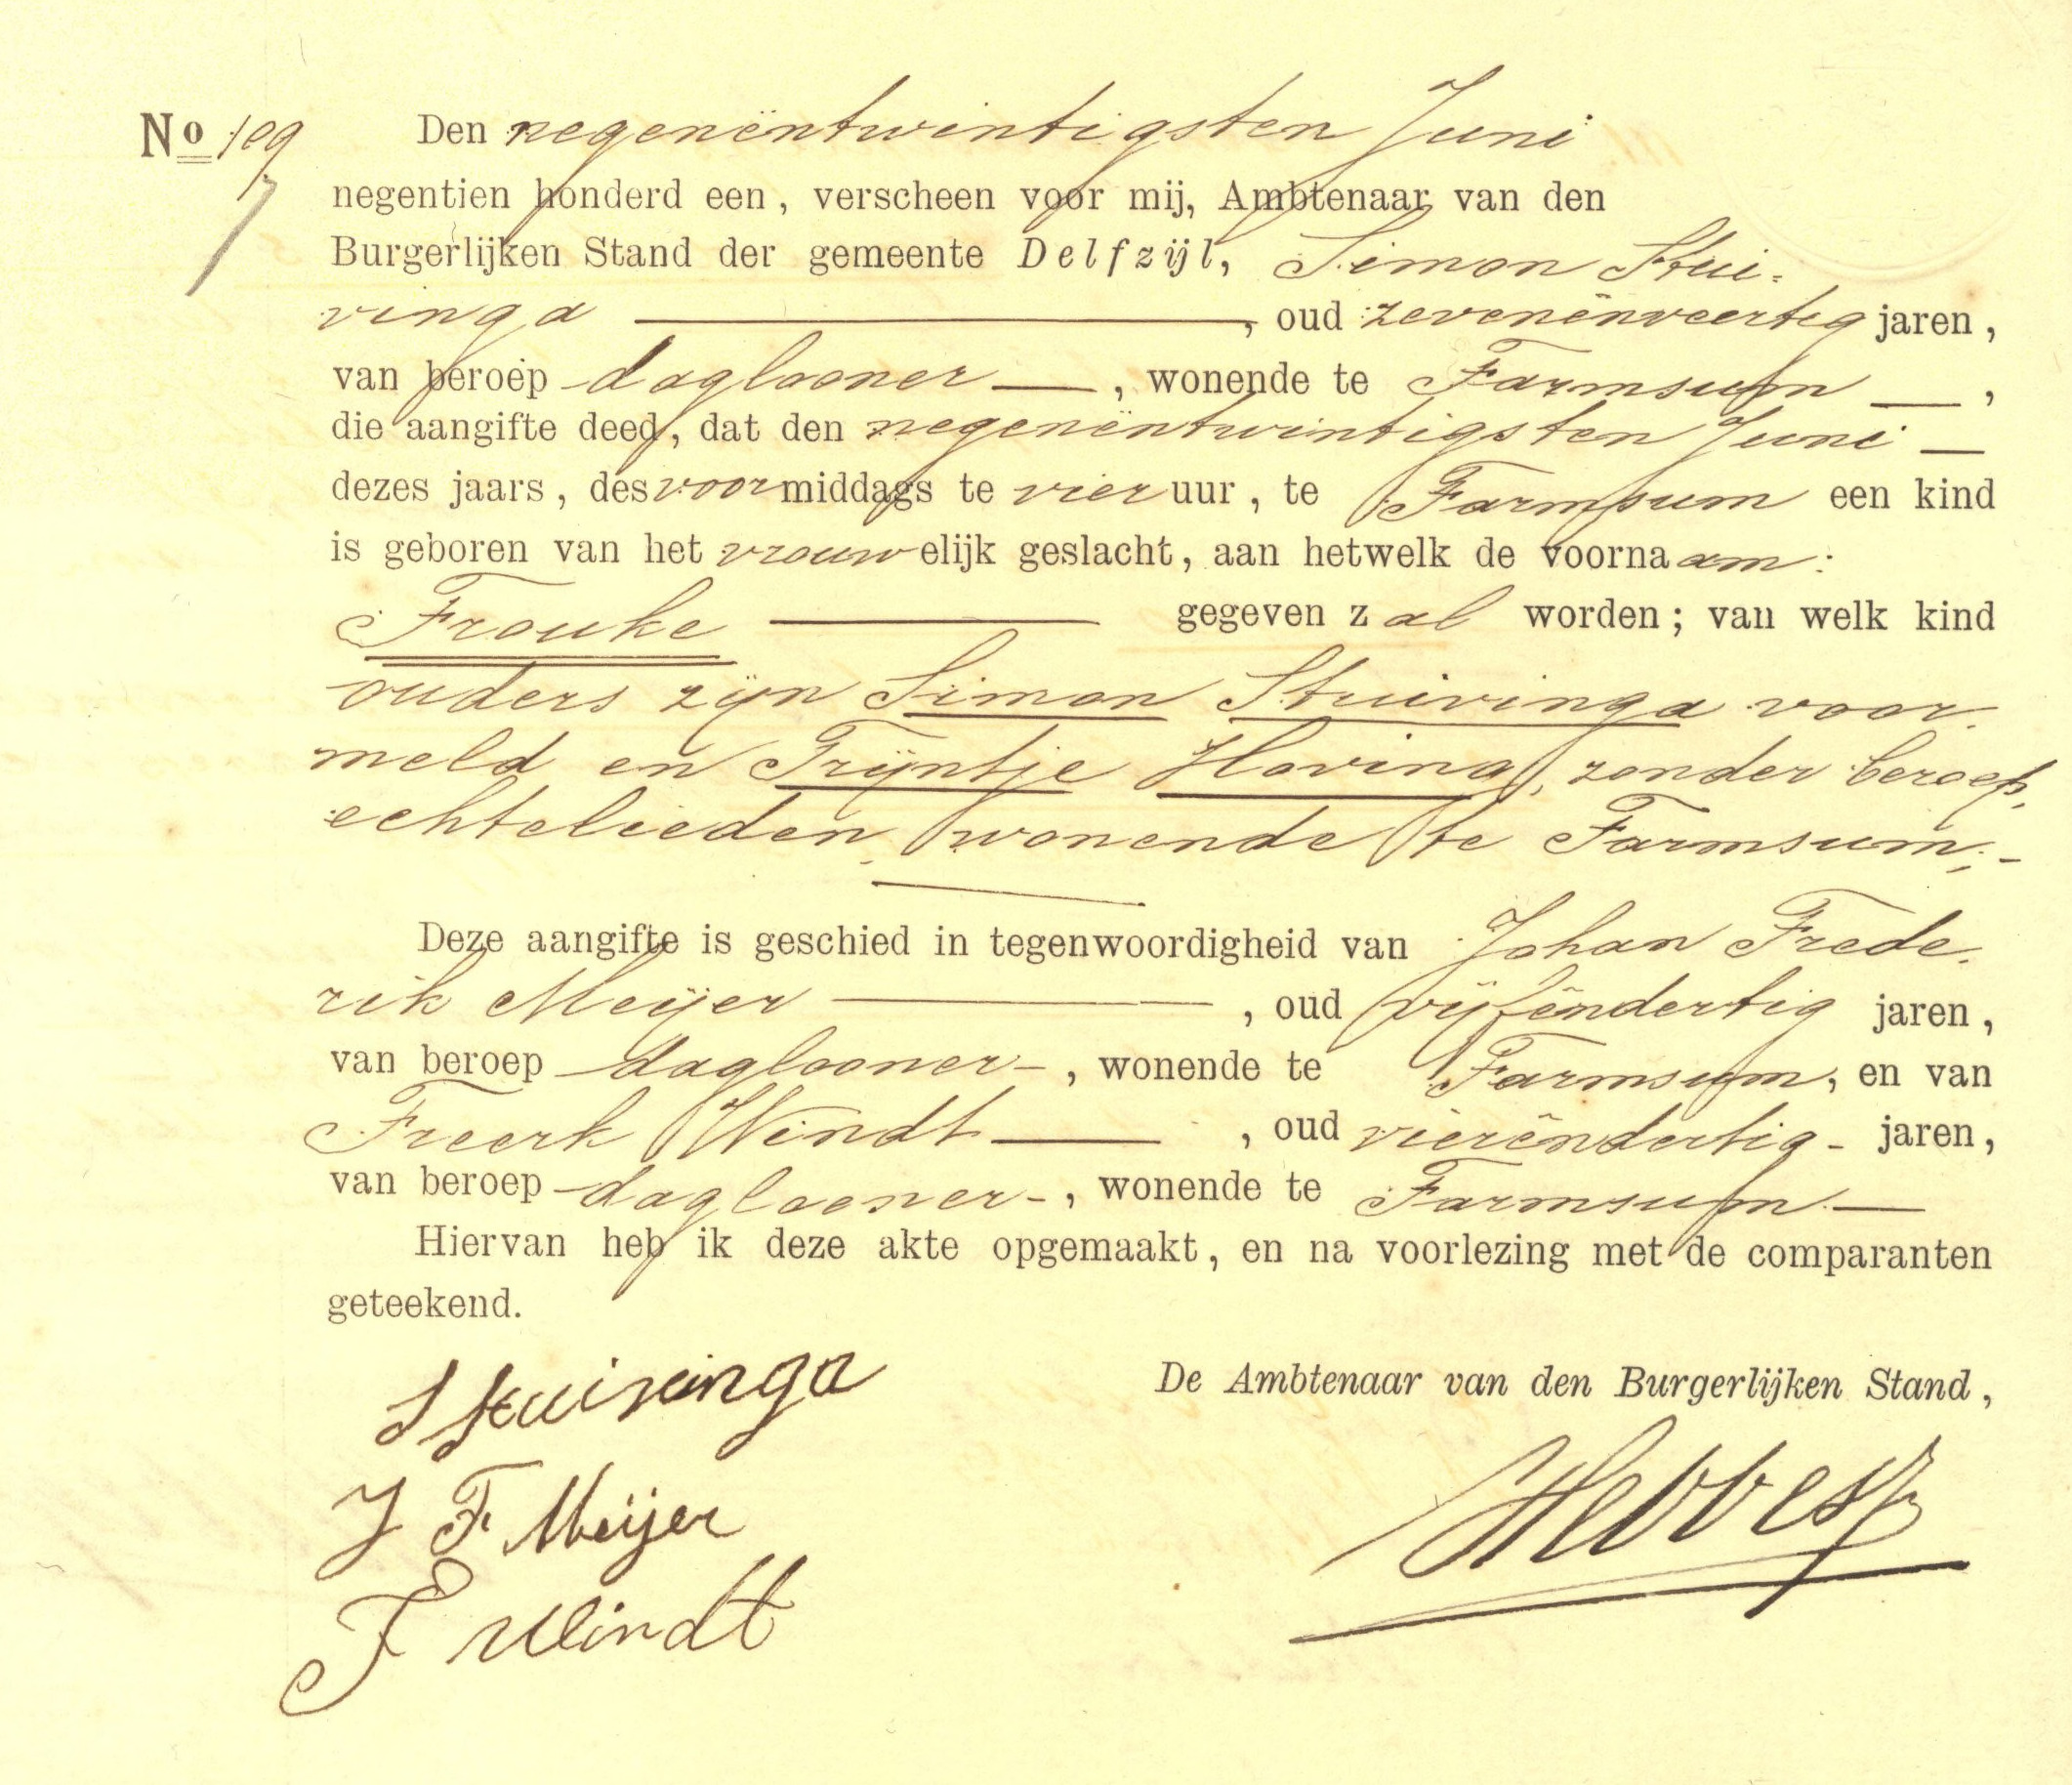 No 109 Den negenëntwintigsten Juni
negentien honderd een, verscheen voor mij, Ambtenaar van den
Burgerlijken Stand der gemeente Delfzijl, Simon Stui-
vinga, oud zevenënveertig jaren,
van beroep daglooner, wonende te Farmsum,
die aangifte deed, dat den negenëntwintigsten Juni
dezes jaars, des voormiddags te vier uur, te Farmsum een kind
is geboren van het vrouwelijk geslacht, aan hetwelk de voornaam:
Frouke gegeven zal worden; van welk kind
ouders zijn Simon Stuivinga voor-
meld en Trijntje Hoving, zonder beroep,
echtelieden, wonende te Farmsum;-
Deze aangifte is geschied in tegenwoordigheid van Johan Frede-
rik Meijer, oud vijfëndertig jaren,
van beroep daglooner-, wonende te Farmsum, en van
Freerk Windt, oud vierëndertig- jaren,
van beroep daglooner-, wonende te Farmsum
Hiervan heb ik deze akte opgemaakt, en na voorlezing met de comparanten
geteekend.
S Stuivinga
De Ambtenaar van den Burgerlijken Stand,
J F Meijer
F Windt